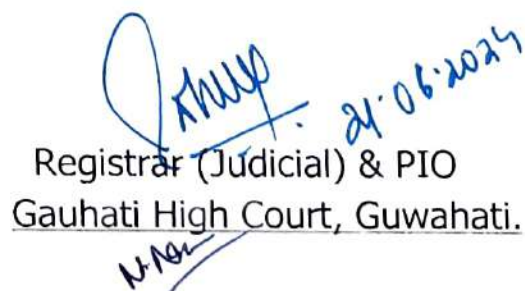 21.06.2024
Registrar (Judicial) & PIO
Gauhati High Court, Guwahati.